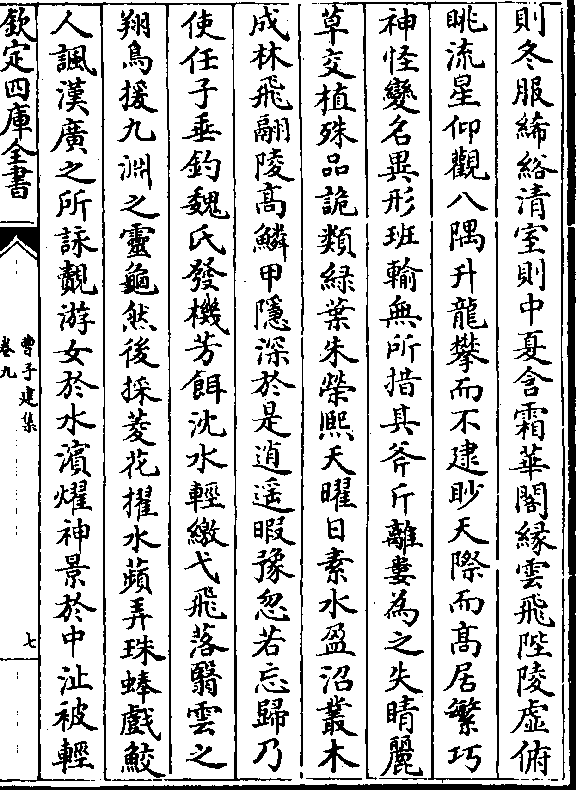 則冬服絺綌清室則中夏含霜華閣緣雲飛陛陵虛俯
眺流星仰觀八隅升龍攀而不逮眇天際而高居繁巧
神怪變名異形班輸無所措其斧斤離婁為之失睛麗
草交植殊品詭類緑葉朱榮熙天曜日素水盈沼叢木
成林飛翮陵高鱗甲隱深於是逍遥暇豫忽若忘歸乃
使任子垂釣魏氏發機芳餌沈水輕繳弋飛落翳雲之
翔鳥援九淵之靈龜然後採菱花擢水蘋弄珠蜯戲鮫
人諷漢廣之所詠覿游女於水濱燿神景於中沚被輕
欽定四庫全書
曹子建集
卷九
七